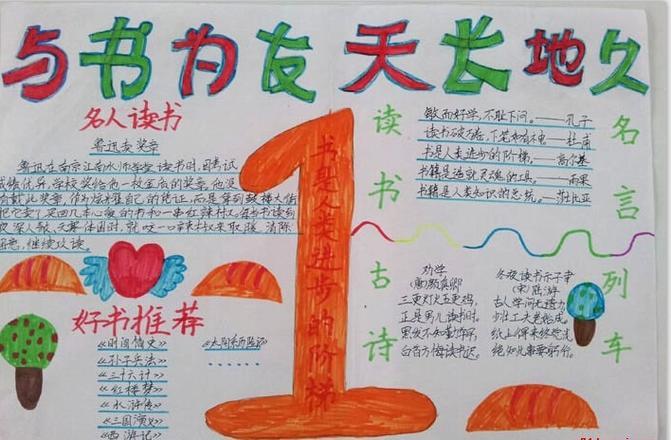 与书为友 天长地久
名人读书
鲁迅卖奖章
鲁迅在南京江南水师学堂读书时,因考试
成绩优异,学校奖给他一枚金质的奖章。他没
有戴此奖章,作为炫耀自己的凭证,而是拿到鼓楼大街
把它卖了,买回几本心爱的书和一串红辣椒。每当书读到
夜深人寂、天寒体困时,就咬一口辣椒以来取暖、清除
困意,继续攻读。
好书推荐
《时间简史》
《孙子兵法》
《三十六计》
《红楼梦》
《水浒传》
《三国演义》
《西游记》
书是人类进步的阶梯
读书
敏而好学,不耻下问。——孔子
读书破万卷,下笔如有神——杜甫
书是人类进步的阶梯,——高尔基
书籍是造就灵魂的工具。——雨果
书籍是人类知识的总统。——莎士比亚
名言列车
古诗
劝学
(唐)颜真卿
三更灯火五更鸡,
正是男儿读书时。
黑发不知勤学早,
白首方悔读书迟。
冬夜读书示子聿
(宋)陆游
古人学问无遗力,
少壮工夫老始成。
纸上得来终觉浅,
绝知此事要躬行。